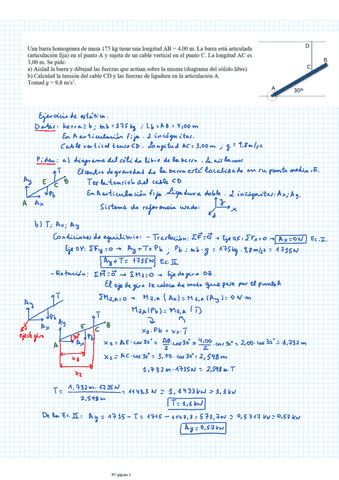 Una barra homogénea de masa 175 kg tiene una longitud AB = 4,00 m. La barra está articulada
(articulación fija) en el punto A y sujeta de un cable vertical en el punto C. La longitud AC es
3,00 m. Se pide:
a) Aislad la barra y dibujad las fuerzas que actúan sobre la misma (diagrama del sólido libre).
b) Calculad la tensión del cable CD y las fuerzas de ligadura en la articulación A.
Tomad g = 9,8 m/s².
D
B
C
A
30º
Ejercicio de estática.
Datos: barra; mb = 175 kg; Lb = AB = 4,00 m
En A articulación fija. 2 incógnitas.
Cable vertical tenso CD. Longitud AC = 3,00 m; g = 9,8 m/s²
Piden: a) diagrama del sólido libre de la barra. Aislamos
El centro de gravedad de la barra está localizado en su punto medio. E.
T es la tensión del cable CD
En A articulación fija ligadura doble. 2 incógnitas: Ax, Ay.
Sistema de referencia usado:
y
x
Ay
T
E
C
B
Pb
A
Ax
b) T; Ax; Ay
Condiciones de equilibrio: - Traslación: ΣF = 0 → Eje OX: ΣFx = 0 → Ax = 0 N Ec. I
Eje OY: ΣFy = 0 → Ay + T = Pb; Pb = mb·g = 175 kg · 9,8 m/s² = 1715 N
Ay + T = 1715 N Ec. II
- Rotación: ΣM = 0 → ΣMz = 0 → Eje de giro OZ.
El eje de giro se coloca de modo que pase por el punto A
ΣMz,A = 0 → Mz,A (Ax) = Mz,A (Ay) = 0 N·m
Mz,A (Pb) = Mz,A (T)
x1 · Pb = x2 · T
x1 = AE · cos 30° = AB/2 · cos 30° = 4,00/2 · cos 30° = 2,00 · cos 30° = 1,732 m
x2 = AC · cos 30° = 3,00 · cos 30° = 2,598 m
1,732 m · 1715 N = 2,598 m · T
Ay
T
Ax
Pb
eje de giro
Ay
T
B
C
E
Pb
A
Ax
x1
x2
T = 1,732 m · 1715 N / 2,598 m = 1143,3 N ≅ 1,1433 kN ≅ 1,1 kN
T = 1,1 kN
De la Ec. II: Ay = 1715 - T = 1715 - 1143,3 = 571,7 N ≅ 0,5717 kN ≅ 0,57 kN
Ay = 0,57 kN
P2 página 1